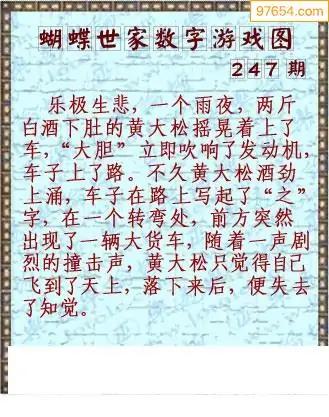 97654.com
蝴蝶世家数字游戏图
247期
乐极生悲，一个雨夜，两斤
白酒下肚的黄大松摇晃着上了
车，“大胆”立即吹响了发动机，
车子上了路。不久黄大松酒劲
上涌，车子在路上写起了“之”
字，在一个转弯处，前方突然
出现了一辆大货车，随着一声剧
烈的撞击声，黄大松只觉得自己
飞到了天上，落下来后，便失去
了知觉。